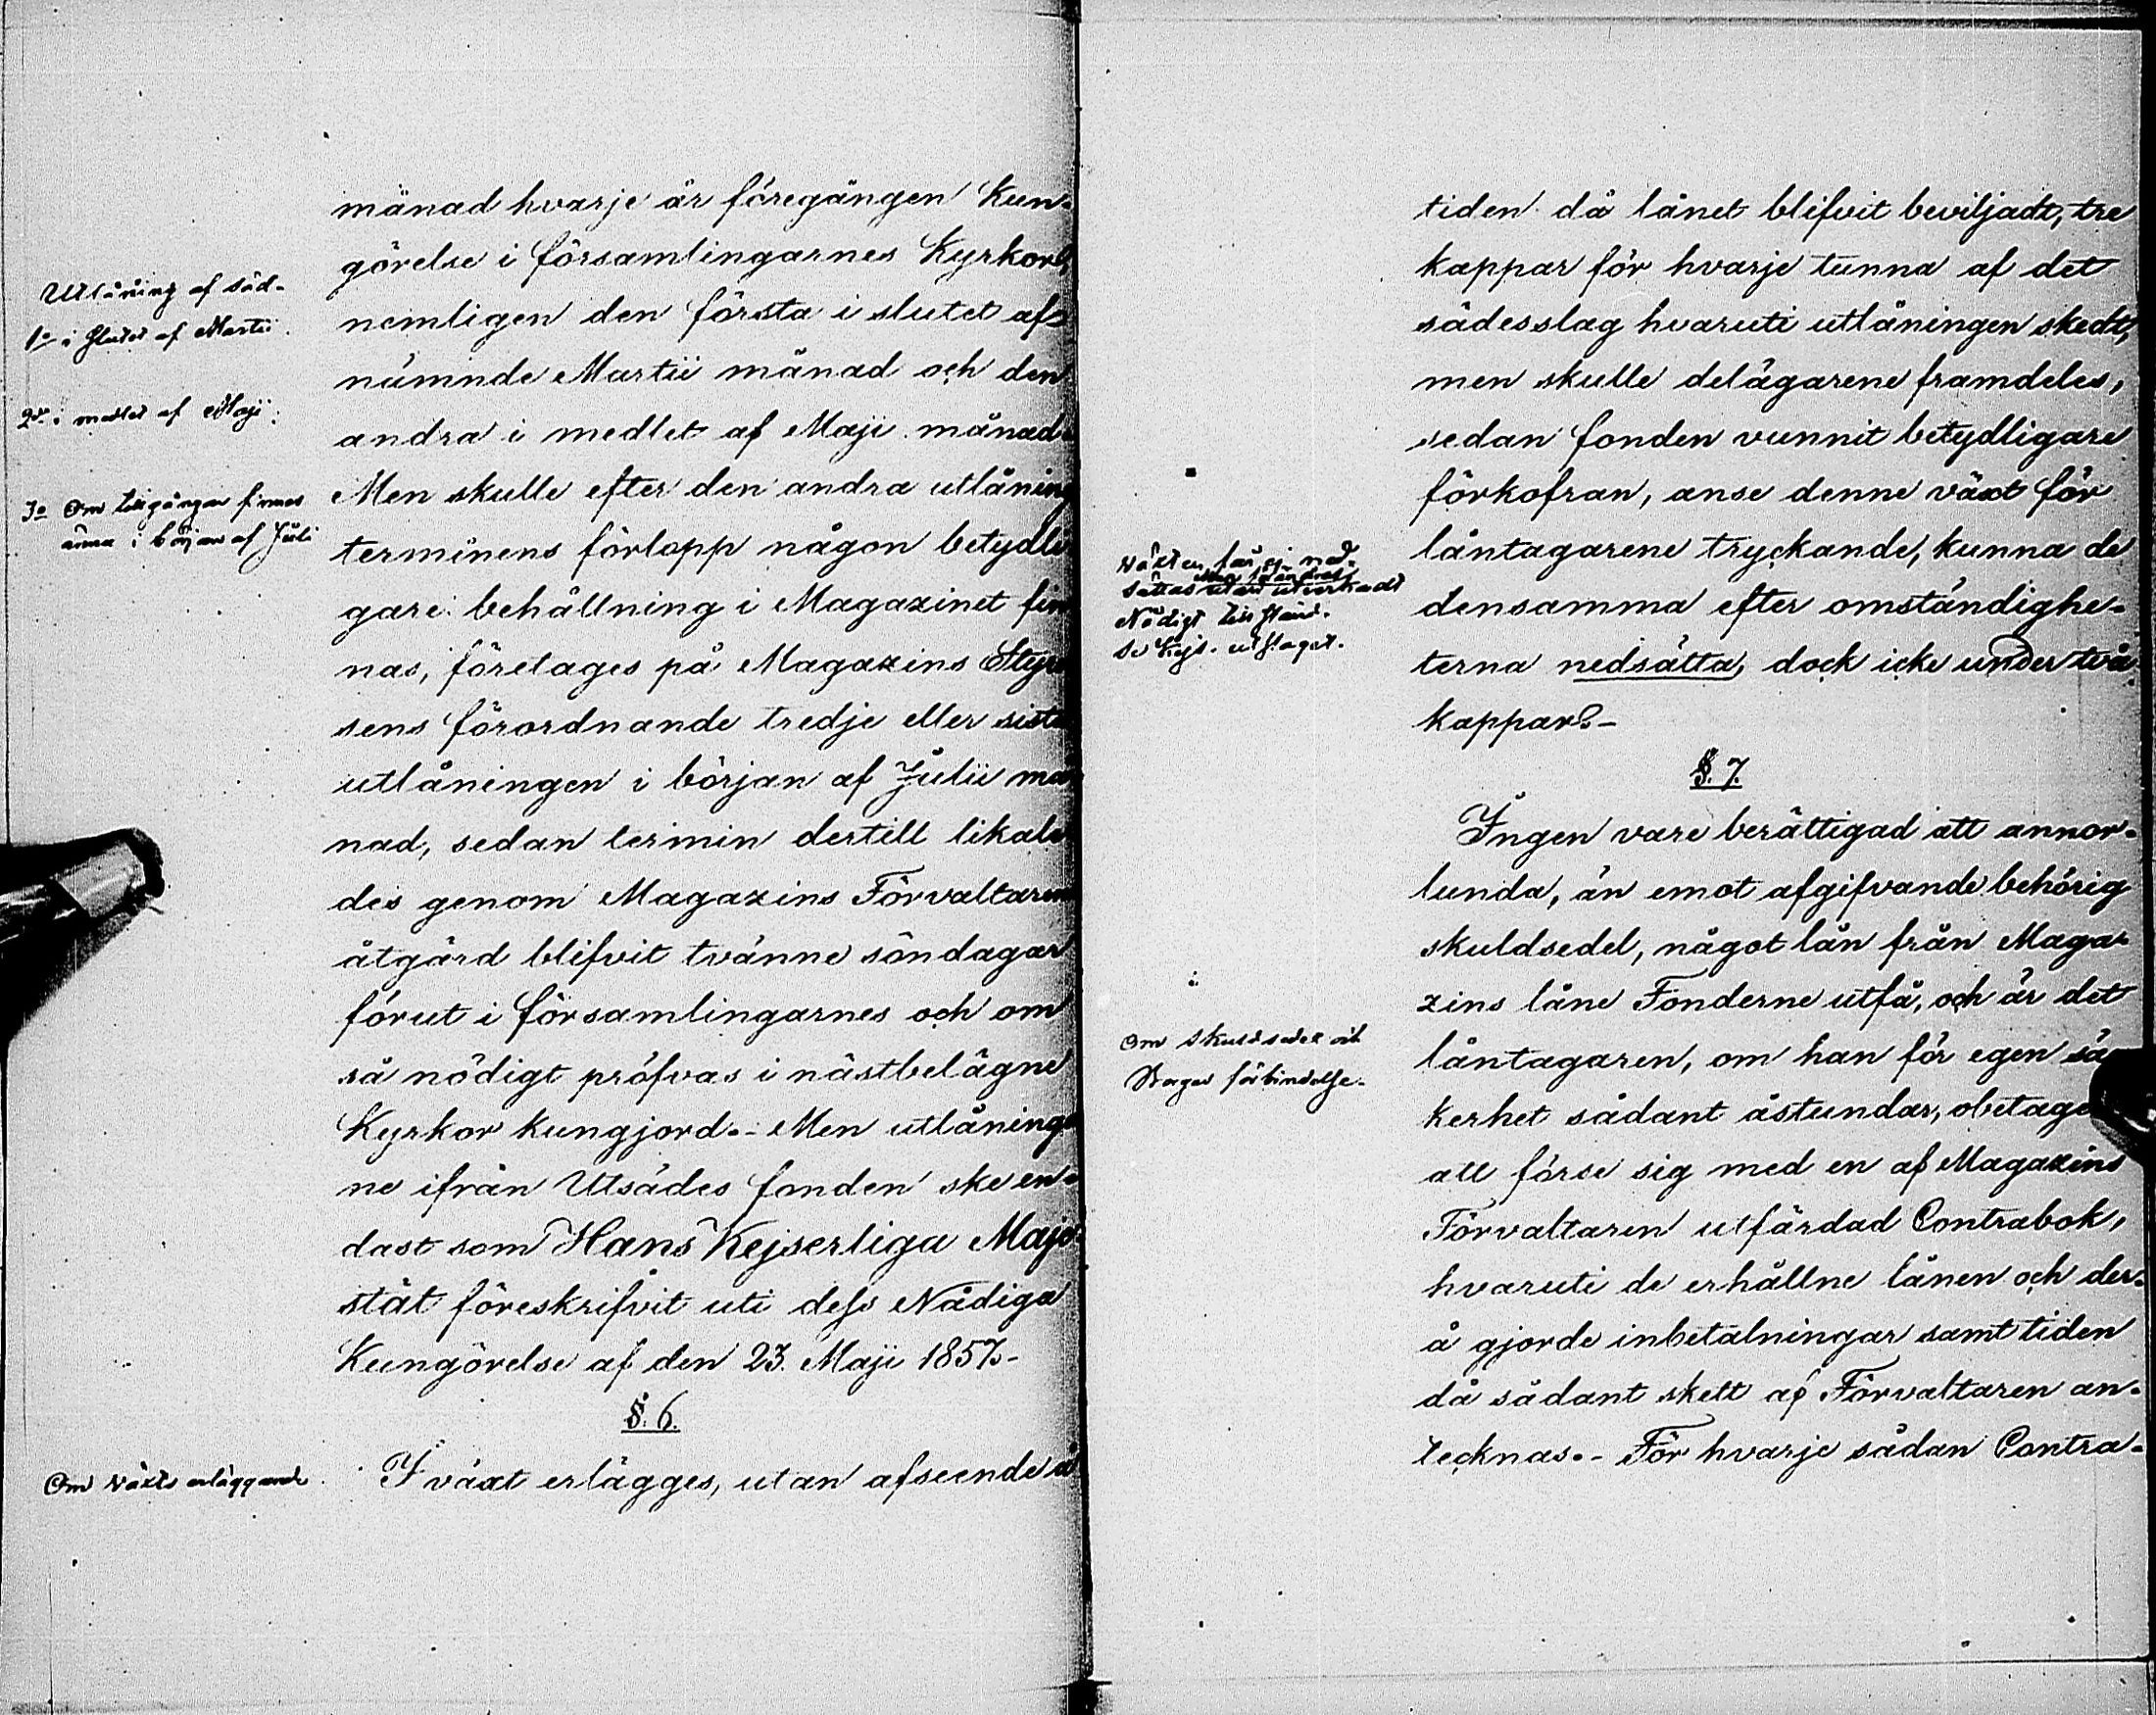 månad hvarje år föregången Kun-
görelse i församlingarnes Kyrkor,
Utlåning af säd-
nemligen den första i slutet af
1o i slutet af Martii.
nämnde Martii månad och den
2o i medlet af Maji.
andra i medlet af Maji månad.
3o Om tillgångar finnas
ännu i början af Juli
Men skulle efter den andra utlåning
terminens förlopp någon betydli
gare behållning i Magazinet fin
nas, företages på Magazins Styrel
sens förordnande tredje eller sista
utlåningen i början af Julii må
nad, sedan termin dertill likale
des genom Magazins Förvaltarens
åtgärd blifvit tvänne söndagar
förut i församlingarnes och om
så nödigt pröfvas i nästbelägne
Kyrkor kungjord.- Men utlåninga
ne ifrån Utsädes fonden ske en-
dast som Hans Kejserliga Maje
stät föreskrifvit uti dess Nådiga
Kungörelse af den 23. Maji 1857.-
§. 6.
Om växts erläggande
I växt erlägges, utan afseende å
tiden då lånet blifvit beviljadt, tre
kappar för hvarje tunna af det
sädesslag hvaruti utlåningen skedt,
men skulle delägarene framdeles,
sedan fonden vunnit betydligare
förkofran, anse denne växt för
låntagarene tryckande, kunna de
Växten får ej ned-
sättas utan utverkadt
Nådigt tillstånd.
Se Kejs. utslaget.
densamma efter omständighe-
terna nedsätta, dock icke under två
kappar.-
§. 7.
Ingen vare berättigad att annor-
lunda, än emot afgifvande behörig
skuldsedel, något lån från Maga-
zins låne Fonderne utfå, och är det
Om skuldsedel och
förbindelse.
låntagaren, om han för egen sä
kerhet sådant åstundar, obetaget
att förse sig med en af Magazins
Förvaltaren utfärdad Contrabok,
hvaruti de erhållne lånen och der-
å gjorde inbetalningar samt tiden
då sådant skett af Förvaltaren an-
tecknas.- För hvarje sådan Contra-